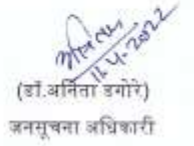 अनिता
11.4.2022
(डॉ.अनिता डगोरे)
जनसूचना अधिकारी